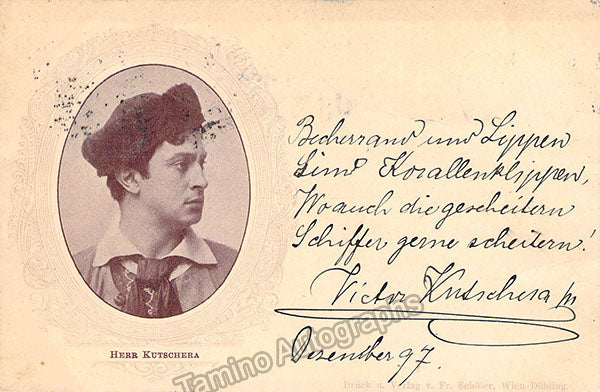 Becherrand und Lippen
Sind Korallenklippen,
Wo auch die gescheitern
Schiffer gerne scheitern!
Victor Kutschera
Dezember 97.
HERR KUTSCHERA
Tamino Autographs
Druck u. Verlag v. Fr. Schöler, Wien-Döbling.